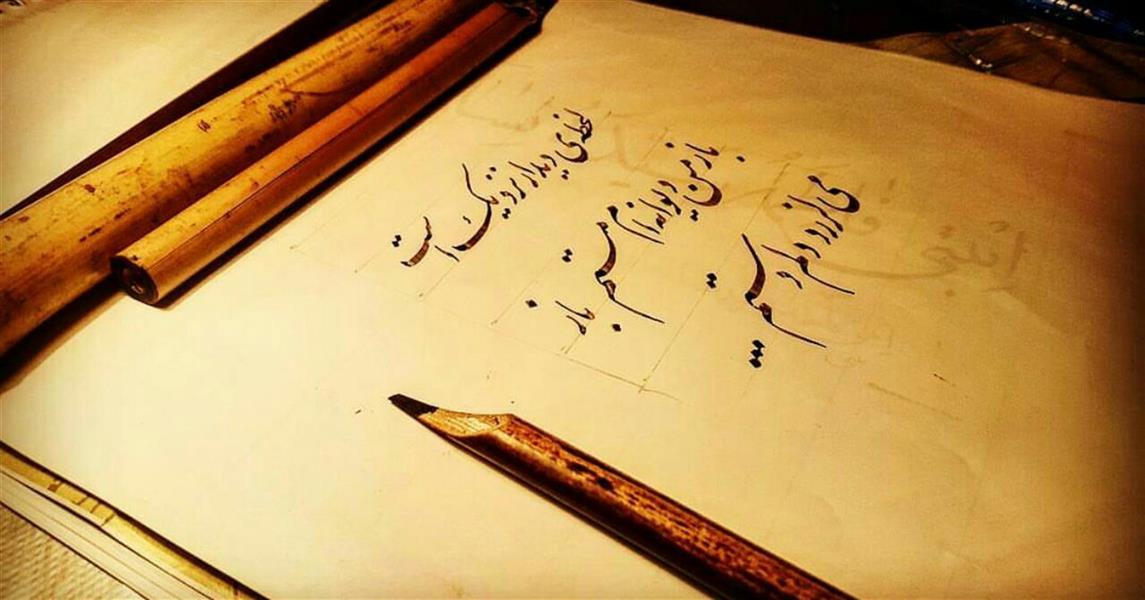 لحظه ی دیدار نزدیک است
باز من دیوانه ام مستم باز
می لرزد دلم دستم ...